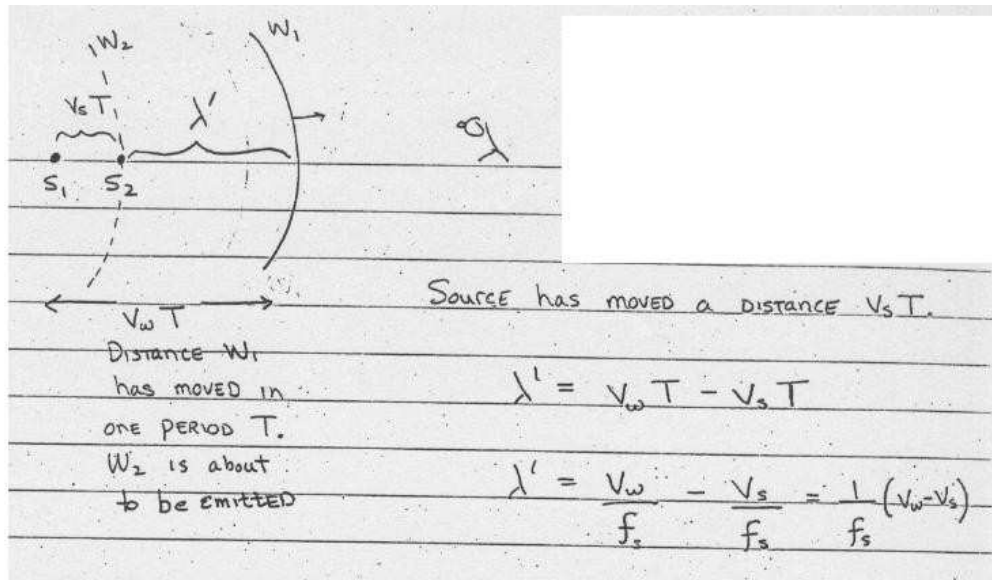 W₂
W₁
VₛT
λ'
S₁ S₂
V_w T
Distance W₁
has moved in
one period T.
W₂ is about
to be emitted
Source has moved a distance VₛT.
λ' = V_w T - Vₛ T
λ' = V_w/fₛ - Vₛ/fₛ = 1/fₛ (V_w - Vₛ)